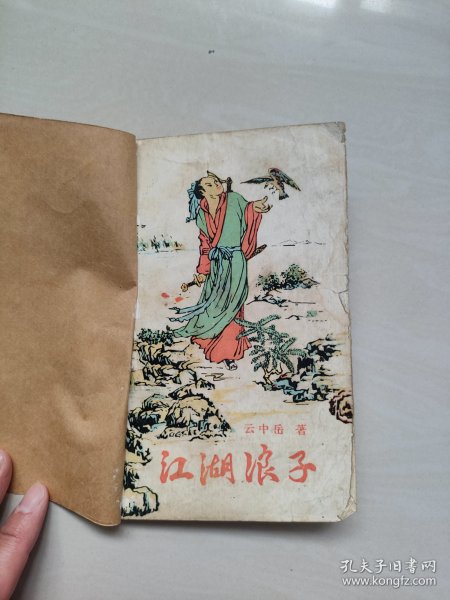 云中岳 著
江湖浪子
孔夫子旧书网
www.kongfz.com